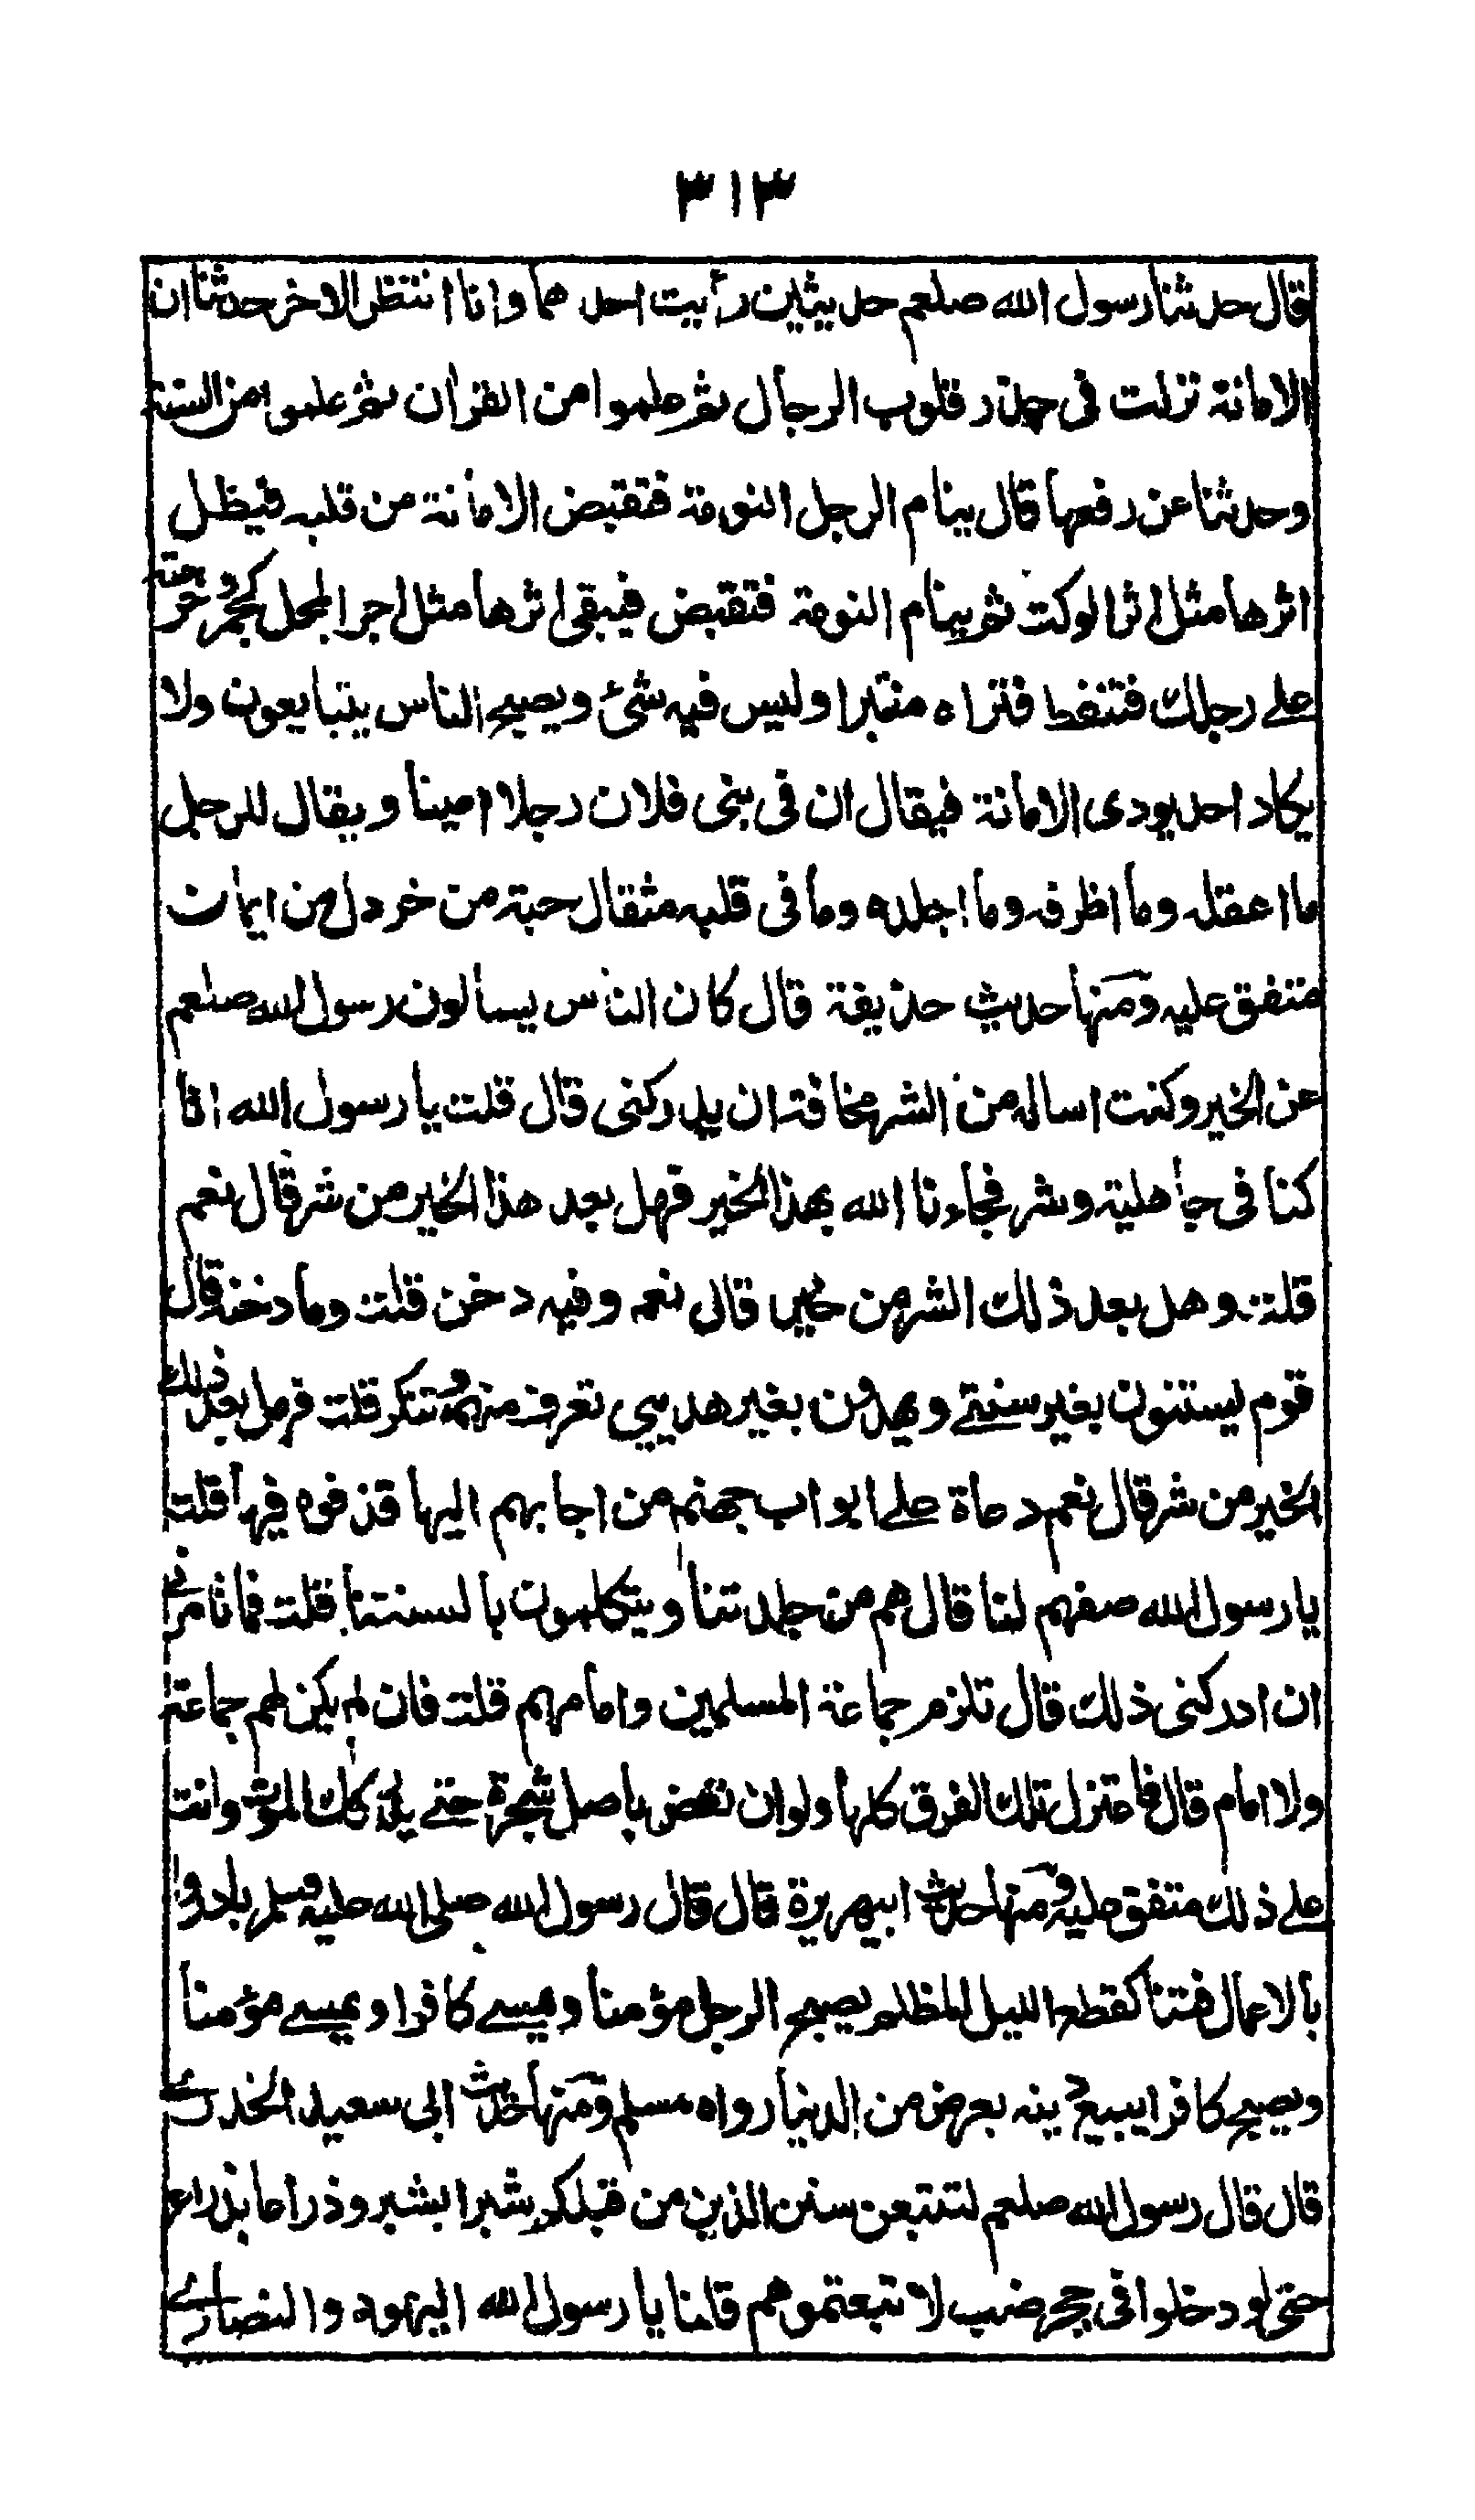 ٣١٣
قال حدثنا رسول الله صلعم حديثين رأيت احدهما وانا انتظر الاخر حدثنا ان
الامانة نزلت فى جذر قلوب الرجال ثم علموا من القرأن ثم علموا من السنة
وحدثنا عن رفعها قال ينام الرجل النومة فتقبض الامانة من قلبه فيظل
اثرها مثل اثر الوكت ثم ينام النومة فتقبض فيبقى اثرها مثل اجر المجل كجمر دحرجته
على رجلك فتنفط فتراه منتبرا وليس فيه شئ ويصبح الناس يتبايعون ولا
يكاد احد يودى الامانة فيقال ان فى بنى فلان رجلا امينا ويقال للرجل
ما اعقله وما اظرفه وما اجلده وما فى قلبه مثقال حبة من خردل من ايمان
متفق عليه ومنها حديث حذيفة قال كان الناس يسألون رسول الله صلعم
عن الخير وكنت اساله من الشر مخافة ان يدركنى قال قلت يا رسول الله انا
كنا فى جاهلية وشر فجاءنا الله بهذا الخير فهل بعد هذا الخير من شر قال نعم
قلت وهل بعد ذلك الشر من خير قال نعم وفيه دخن قلت وما دخنه قال
قوم يستنون بغير سنتى ويهدون بغير هديي تعرف منهم وتنكر قلت فهل بعد ذلك
الخير من شر قال نعم دعاة على ابواب جهنم من اجابهم اليها قذفوه فيها قلت
يا رسول الله صفهم لنا قال هم من جلدتنا ويتكلمون بالسنتنا قلت فما تامرنى
ان ادركنى ذلك قال تلزم جماعة المسلمين وامامهم قلت فان لم يكن لهم جماعة
ولا امام قال فاعتزل تلك الفرق كلها ولو ان تعض باصل شجرة حتى يدركك الموت وانت
على ذلك متفق عليه ومنها حديث ابيهريرة قال قال رسول الله صلى الله عليه وسلم بادروا
بالاعمال فتنا كقطع الليل المظلم يصبح الرجل مؤمنا ويمسى كافرا ويمسى مؤمنا
ويصبح كافرا يبيع دينه بعرض من الدنيا رواه مسلم ومنها حديث ابى سعيد الخدرى
قال قال رسول الله صلعم لتتبعن سنن الذين من قبلكم شبرا بشبر وذراعا بذراع
حتى لو دخلوا فى جحر ضب لا تبعتموهم قلنا يا رسول الله اليهود والنصارى